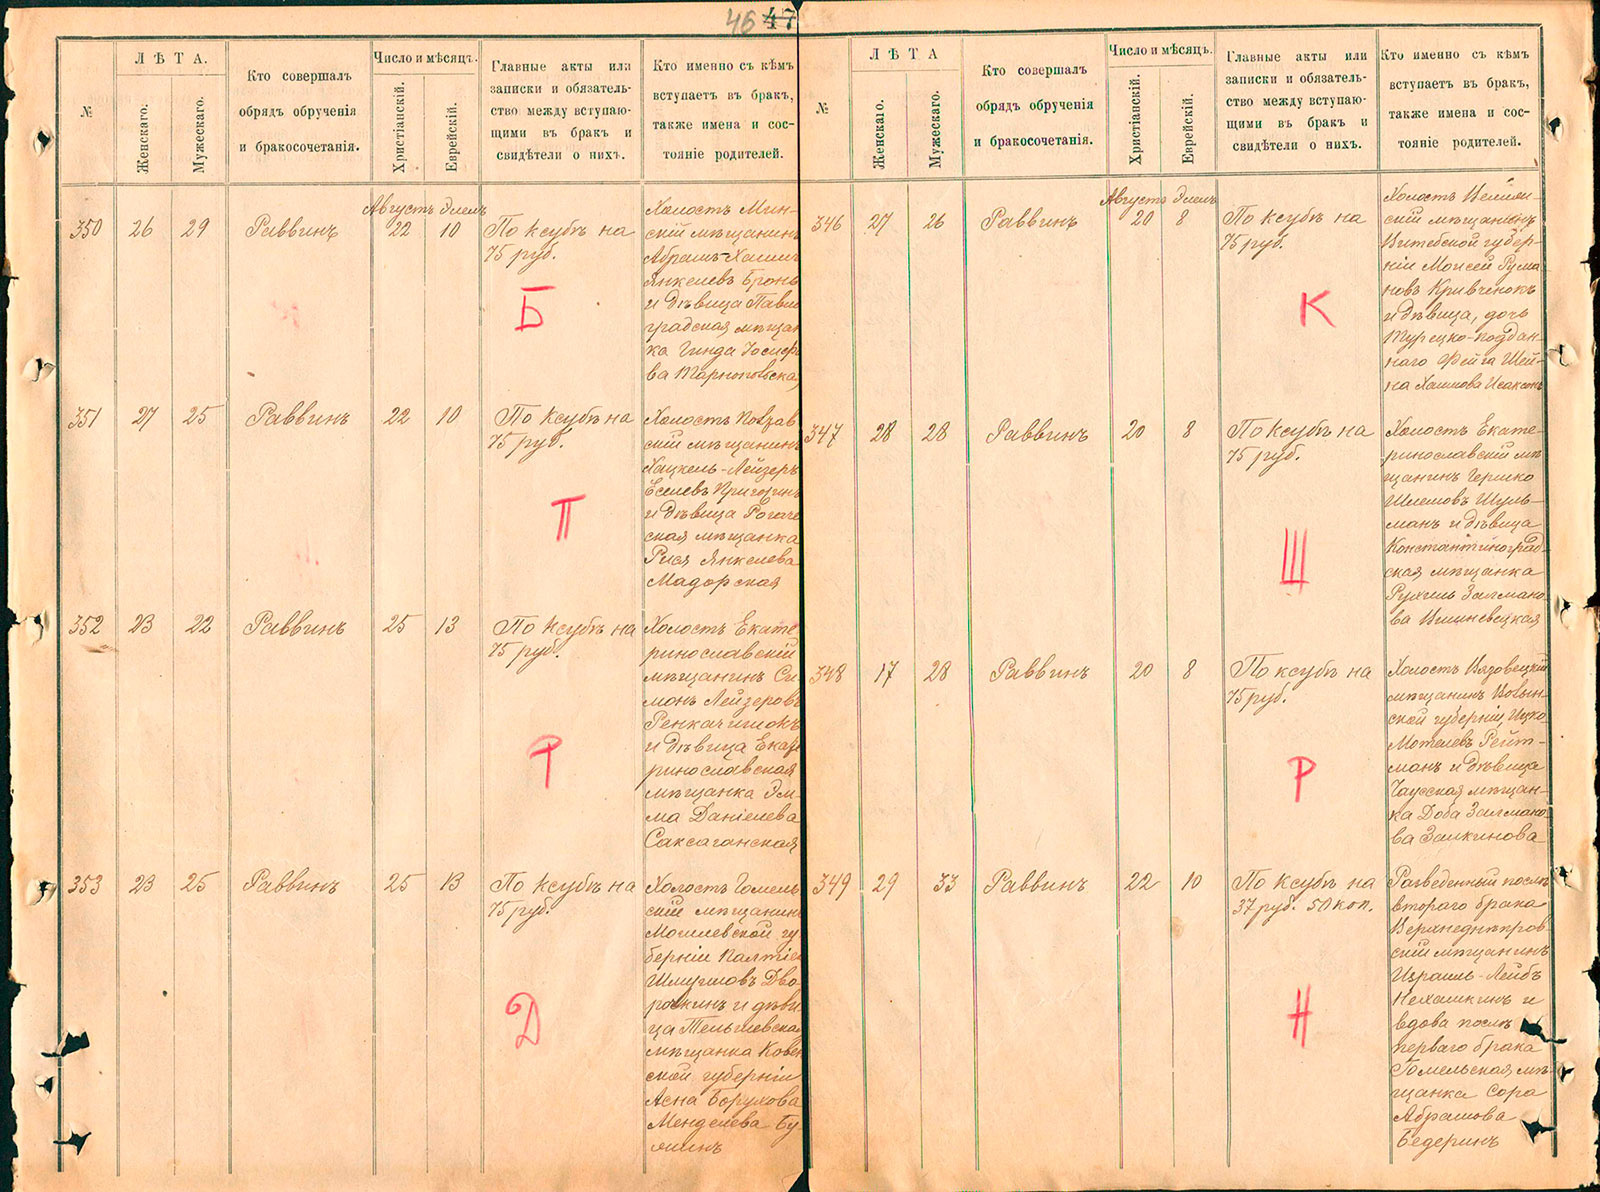 46 47
№
ЛѢТА.
Женскаго.
Мужескаго.
Кто совершалъ
обрядъ обрученія
и бракосочетанія.
Число и мѣсяцъ.
Христіанскій.
Еврейскій.
Главные акты или
записки и обязатель-
ство между вступаю-
щими въ бракъ и
свидѣтели о нихъ.
Кто именно съ кѣмъ
вступаетъ въ бракъ,
также имена и сос-
тояніе родителей.
Августъ Элелъ
350 26 29 Раввинъ 22 10
По ксубѣ на
75 руб.
Б
Холостъ Мин-
скій мѣщанинъ
Абрамъ-Хаимъ
Янкелевъ Бронъ
и дѣвица Павло
градская мѣщан
ка Гинда Іосифо
ва Тарнопольская
351 27 25 Раввинъ 22 10
По ксубѣ на
75 руб.
П
Холостъ
скій мѣщанинъ
Хацкель-Лейзеръ
Еселевъ Пригожинъ
и дѣвица Рогаче
ская мѣщанка
Рися Янкелева
Мадорская
352 23 22 Раввинъ 25 13
По ксубѣ на
75 руб.
Р
Холостъ Екате
ринославскій
мѣщанинъ Си
монъ Лейзеровъ
и дѣвица Екате
ринославская
мѣщанка Эм-
ма Даніелева
Саксаганская
353 23 25 Раввинъ 25 13
По ксубѣ на
75 руб.
Д
Холостъ Гомель
скій мѣщанинъ
Могилевской гу
берніи Палтіел
Шмуиловъ Дво
ркинъ и дѣви
ца Тельшевская
мѣщанка Ковен
ской губерніи
Асна Борухова
Менделева Бу
№
ЛѢТА
Женскаго.
Мужескаго.
Кто совершалъ
обрядъ обрученія
и бракосочетанія.
Число и мѣсяцъ.
Христіанскій.
Еврейскій.
Главные акты или
записки и обязатель-
ство между вступаю-
щими въ бракъ и
свидѣтели о нихъ.
Кто именно съ кѣмъ
вступаетъ въ бракъ,
также имена и сос-
тояніе родителей.
Августъ Элелъ
346 27 26 Раввинъ 20 8
По ксубѣ на
75 руб.
К
Холостъ Велиж-
скій мѣщанинъ
Витебской губер-
ніи Моисей Рума
новъ Кривченокъ
и дѣвица, дочь
Турецко-поддан-
наго Фейга Шей-
на Хаимова Исаксонъ
347 28 28 Раввинъ 20 8
По ксубѣ на
75 руб.
Ш
Холостъ Екате-
ринославскій мѣ
щанинъ Гершко
Шлемовъ Шуль-
манъ и дѣвица
Константиноград-
ская мѣщанка
Рухль Залмано-
ва Вишневецкая
348 17 28 Раввинъ 20 8
По ксубѣ на
75 руб.
Р
Холостъ
мѣщанинъ Волын-
ской губерніи Ицко-
Мотелевъ Рейт-
манъ и дѣвица
Чаусская мѣщан-
ка Доба Залмано-
ва Залкинова
349 29 33 Раввинъ 22 10
По ксубѣ на
37 руб. 50 коп.
Н
Разведенный послѣ
втораго брака
Верхнеднѣпров-
скій мѣщанинъ
Израиль-Лейбъ
Нехамкинъ и
вдова послѣ
перваго брака
Гомельская мѣ-
щанка Сора
Абрамова
Бедеринъ